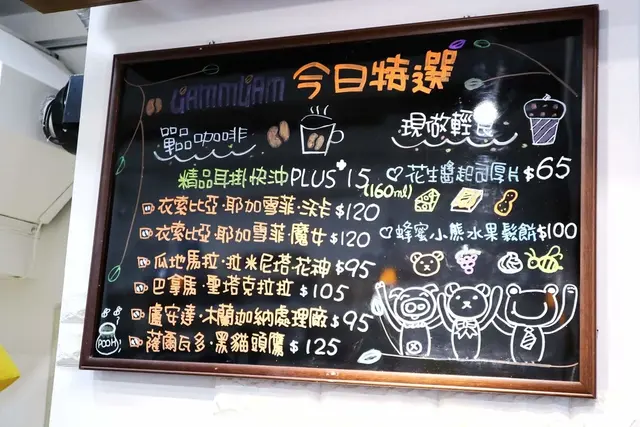 今日特選
單品咖啡
精品耳掛快沖PLUS+15
(160ml)
衣索比亞·耶加雪菲·沃卡 $120
衣索比亞·耶加雪菲·魔女 $120
瓜地馬拉·拉米尼塔·花神 $95
巴拿馬·聖塔克拉拉 $105
盧安達·木蘭迦納處理廠 $95
薩爾瓦多·黑貓頭鷹 $125
現做輕食
花生醬起司厚片 $65
蜂蜜小熊水果鬆餅 $100
POOH